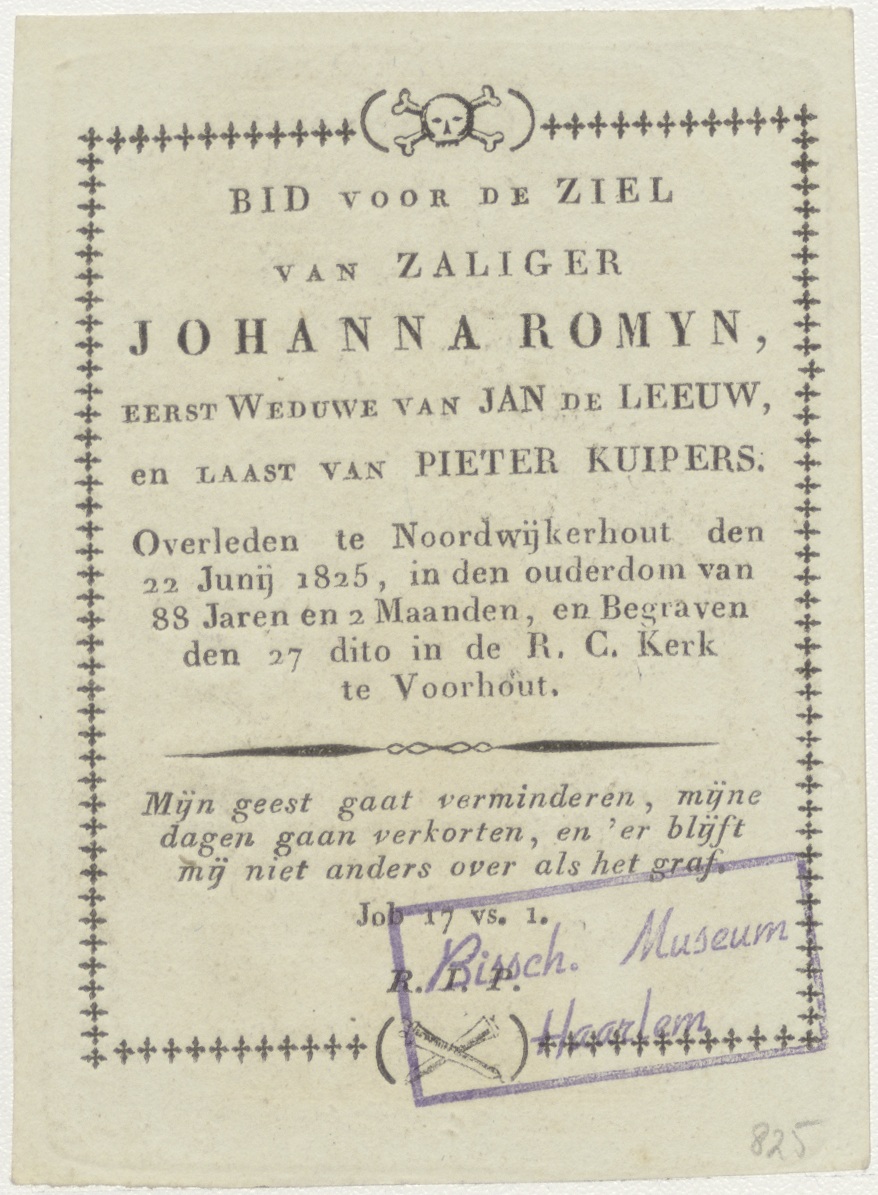 BID VOOR DE ZIEL
VAN ZALIGER
JOHANNA ROMYN,
EERST WEDUWE VAN JAN DE LEEUW,
en LAAST VAN PIETER KUIPERS.
Overleden te Noordwijkerhout den
22 Junij 1825, in den ouderdom van
88 Jaren en 2 Maanden, en Begraven
den 27 dito in de R. C. Kerk
te Voorhout.
Mijn geest gaat verminderen, mijne
dagen gaan verkorten, en 'er blijft
mij niet anders over als het graf.
Job 17 vs. 1.
R. I. P.
Bissch. Museum
Haarlem
825